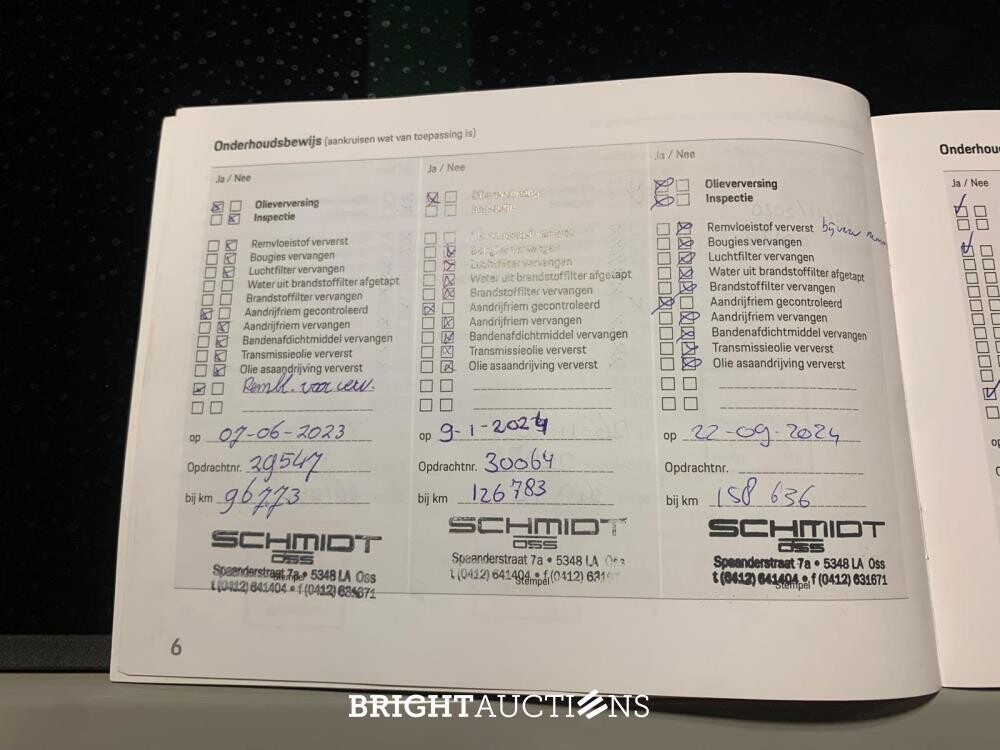 Onderhoudsbewijs (aankruisen wat van toepassing is)
Ja / Nee
Olieverversing
Inspectie
Remvloeistof ververst
Bougies vervangen
Luchtfilter vervangen
Water uit brandstoffilter afgetapt
Brandstoffilter vervangen
Aandrijfriem gecontroleerd
Aandrijfriem vervangen
Bandenafdichtmiddel vervangen
Transmissieolie ververst
Olie asaandrijving ververst
Rembl. voor verv.
op 07-06-2023
Opdrachtnr. 29547
bij km 96773
SCHMIDT
OSS
Spaanderstraat 7a • 5348 LA Oss
Stempel
t (0412) 641404 • f (0412) 631671
Ja / Nee
Olieverversing
Inspectie
Remvloeistof ververst
Bougies vervangen
Luchtfilter vervangen
Water uit brandstoffilter afgetapt
Brandstoffilter vervangen
Aandrijfriem gecontroleerd
Aandrijfriem vervangen
Bandenafdichtmiddel vervangen
Transmissieolie ververst
Olie asaandrijving ververst
op 9-1-2024
Opdrachtnr. 30064
bij km 126783
SCHMIDT
OSS
Spaanderstraat 7a • 5348 LA Oss
t (0412) 641404 • f (0412) 6316
Stempel
Ja / Nee
Olieverversing
Inspectie
Remvloeistof ververst
Bougies vervangen
Luchtfilter vervangen
Water uit brandstoffilter afgetapt
Brandstoffilter vervangen
Aandrijfriem gecontroleerd
Aandrijfriem vervangen
Bandenafdichtmiddel vervangen
Transmissieolie ververst
Olie asaandrijving ververst
op 22-09-2024
Opdrachtnr.
bij km 158 636
SCHMIDT
OSS
Spaanderstraat 7a • 5348 LA Oss
t (0412) 641404 • f (0412) 631671
Stempel
6
Onderhou
Ja / Nee
BRIGHTAUCTIONS